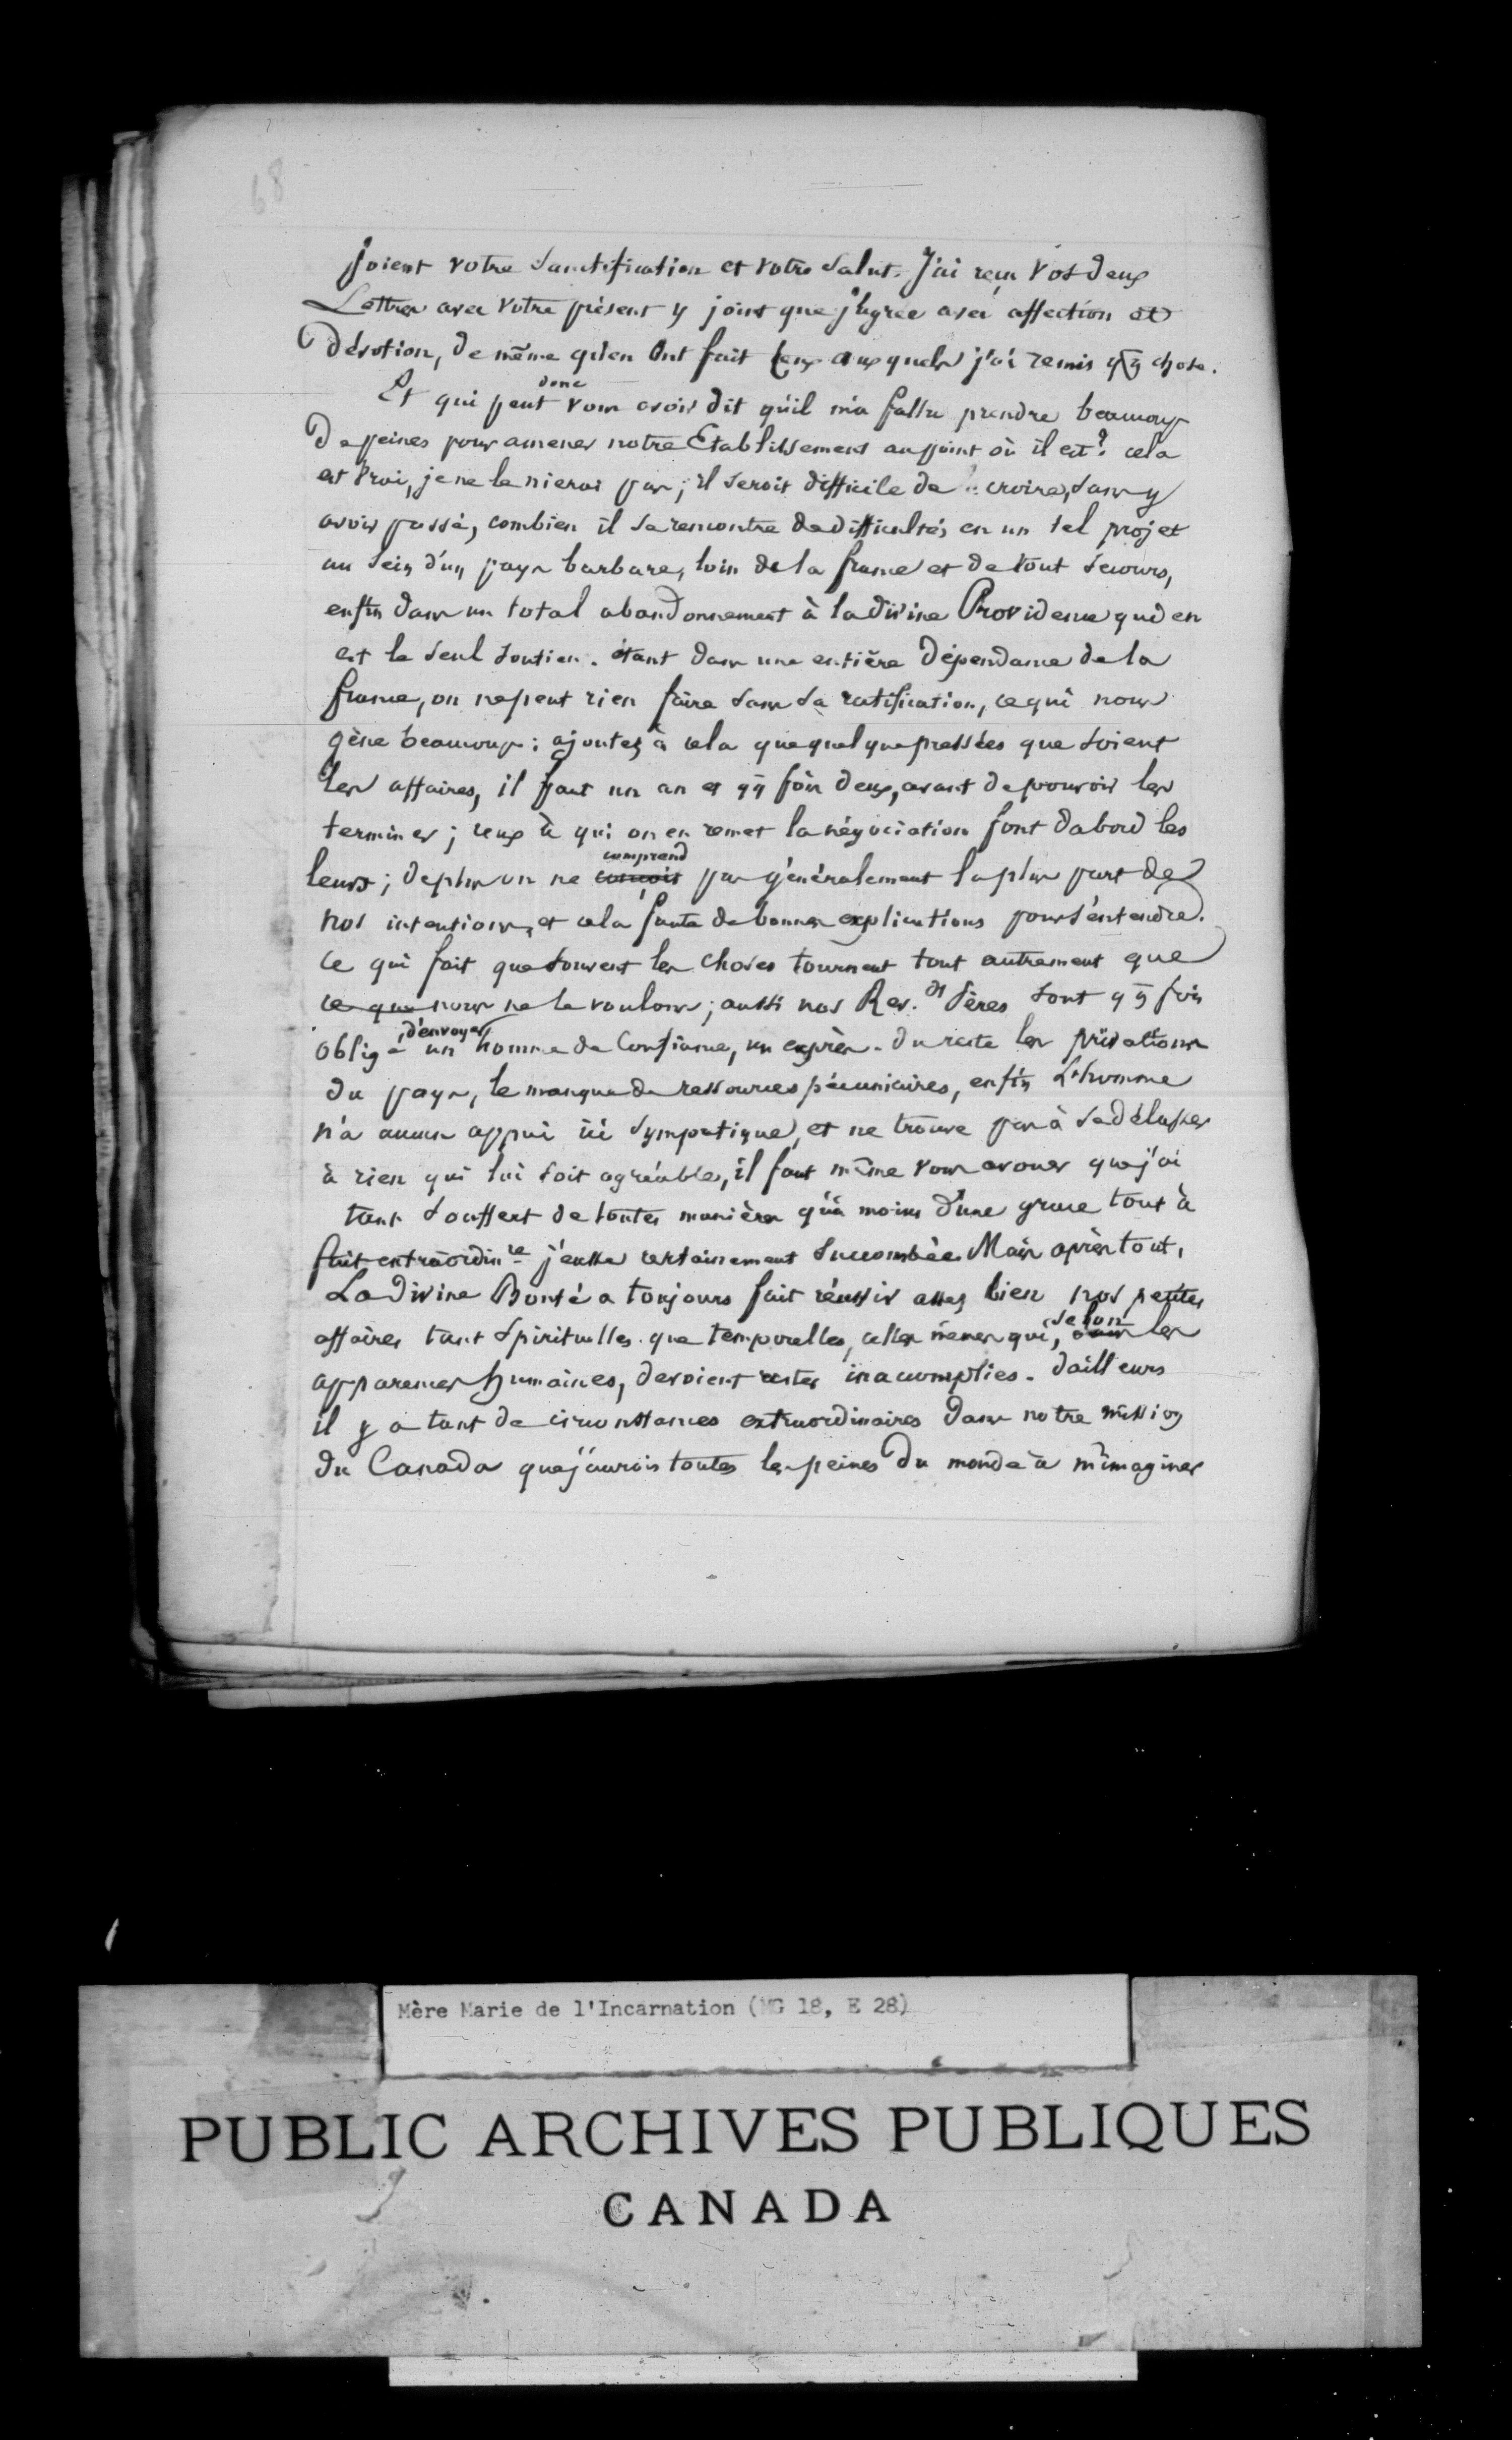 68
soient votre sanctification et votre salut. J'ai reçu vos deux
Lettres avec votre présent y joint que j'agrée avec affection et
dévotion, de même qu'en ont fait ceux auxquels j'ai remis qq chose.
Et qui peut donc vous avoir dit qu'il m'a fallu prendre beaucoup
de peines pour amener notre Etablissement au point où il est? cela
est vrai, je ne le nierai pas; il seroit difficile de croire, sans y
avoir passé, combien il se rencontre de difficultés en un tel projet
au sein d'un pays barbare, loin de la france et de tout secours,
enfin dans un total abandonnement à la divine Providence qui en
est le seul soutien. étant dans une entière dépendance de la
france, on ne peut rien faire sans sa ratification, ce qui nous
gène beaucoup: ajoutez à cela que quelque pressées que soient
les affaires, il faut un an et qq fois deux, avant de pouvoir les
terminer; ceux à qui on en remet la négociation font dabord les
leurs; de plus on ne conçoit comprend pas généralement la plus part de
nos intentions, et cela faute de bonnes explications pour s'entendre.
ce qui fait que souvent les choses tournent tout autrement que
ce que nous ne le voulons; aussi nos Rev.ds Pères sont qq fois
obligé d'envoyer un homme de confiance, un exprès. du reste les privations
du pays, le manque de ressources pécuniaires, enfin L'homme
n'a aucun appui ici sympatique, et ne trouve pas à se délasser
à rien qui lui soit agréable, il faut même vous avouer que j'ai
tant souffert de toutes manières qu'à moins d'une grace tout à
fait extraordin.re j'eusse certainement succombée. Mais après tout,
La divine Bonté a toujours fait réussir assez bien nos petites
affaires tant spirituelles que temporelles, celles mêmes qui, selon les
apparences humaines, devoient rester inaccomplies. d'ailleurs
il y a tant de circonstances extraordinaires dans notre mission
du Canada que j'aurois toutes les peines du monde à m'imaginer
Mère Marie de l'Incarnation (MG 18, E 28)
PUBLIC ARCHIVES PUBLIQUES
CANADA